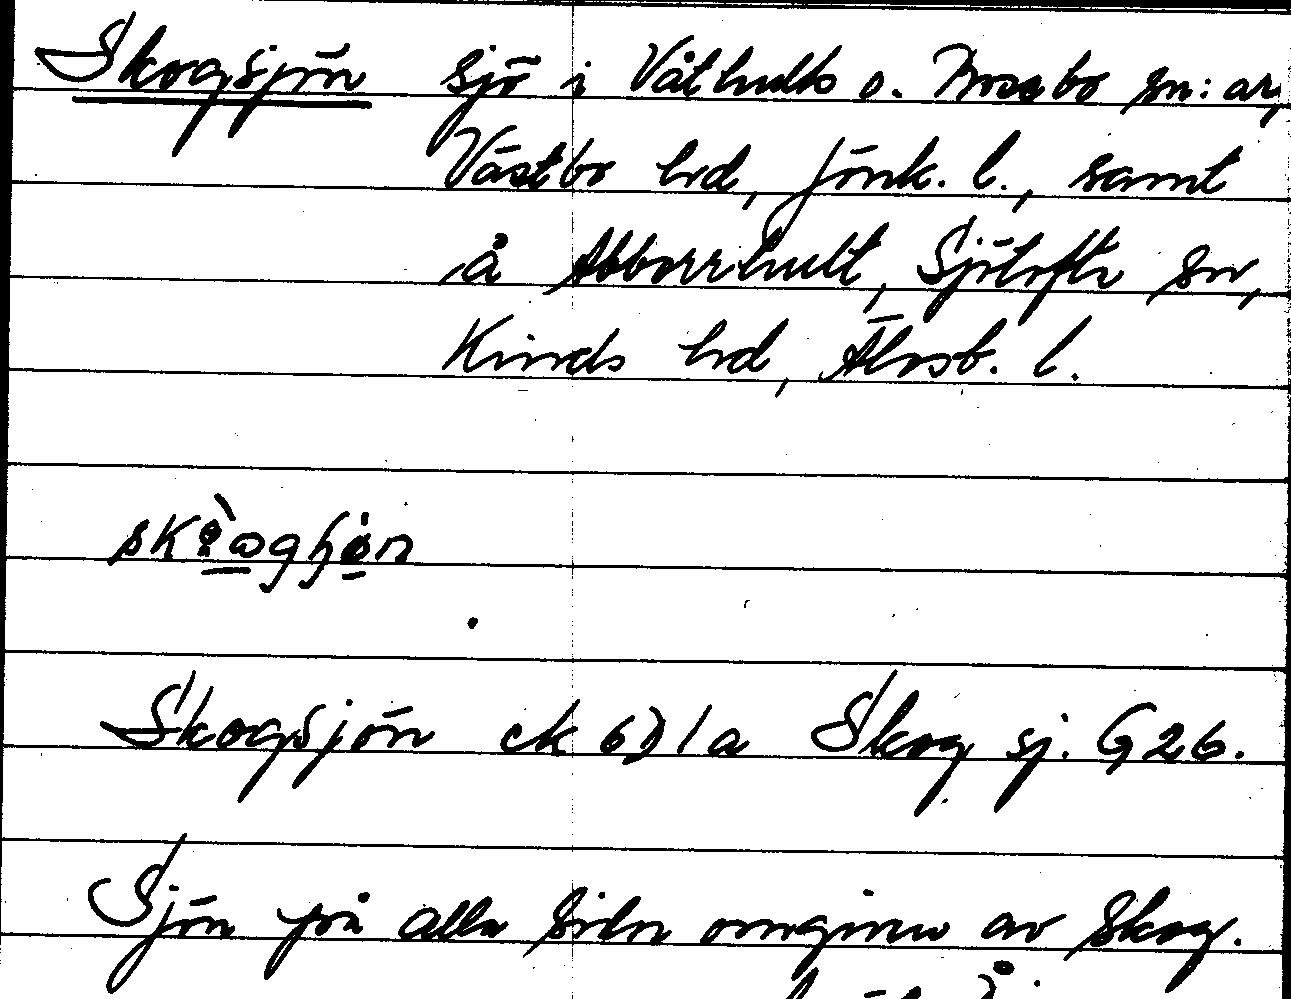 Skogsjön sjö i Våthults o. Bosebo sn:ar,
Västbo hd, Jönk. l., samt
å Abborrhult, Sjötofta sn,
Kinds hd, Älvsb. l.
Skogsjön ek 61 a Skog sj. G26.
Sjön på alla sidor omgiven av skog.